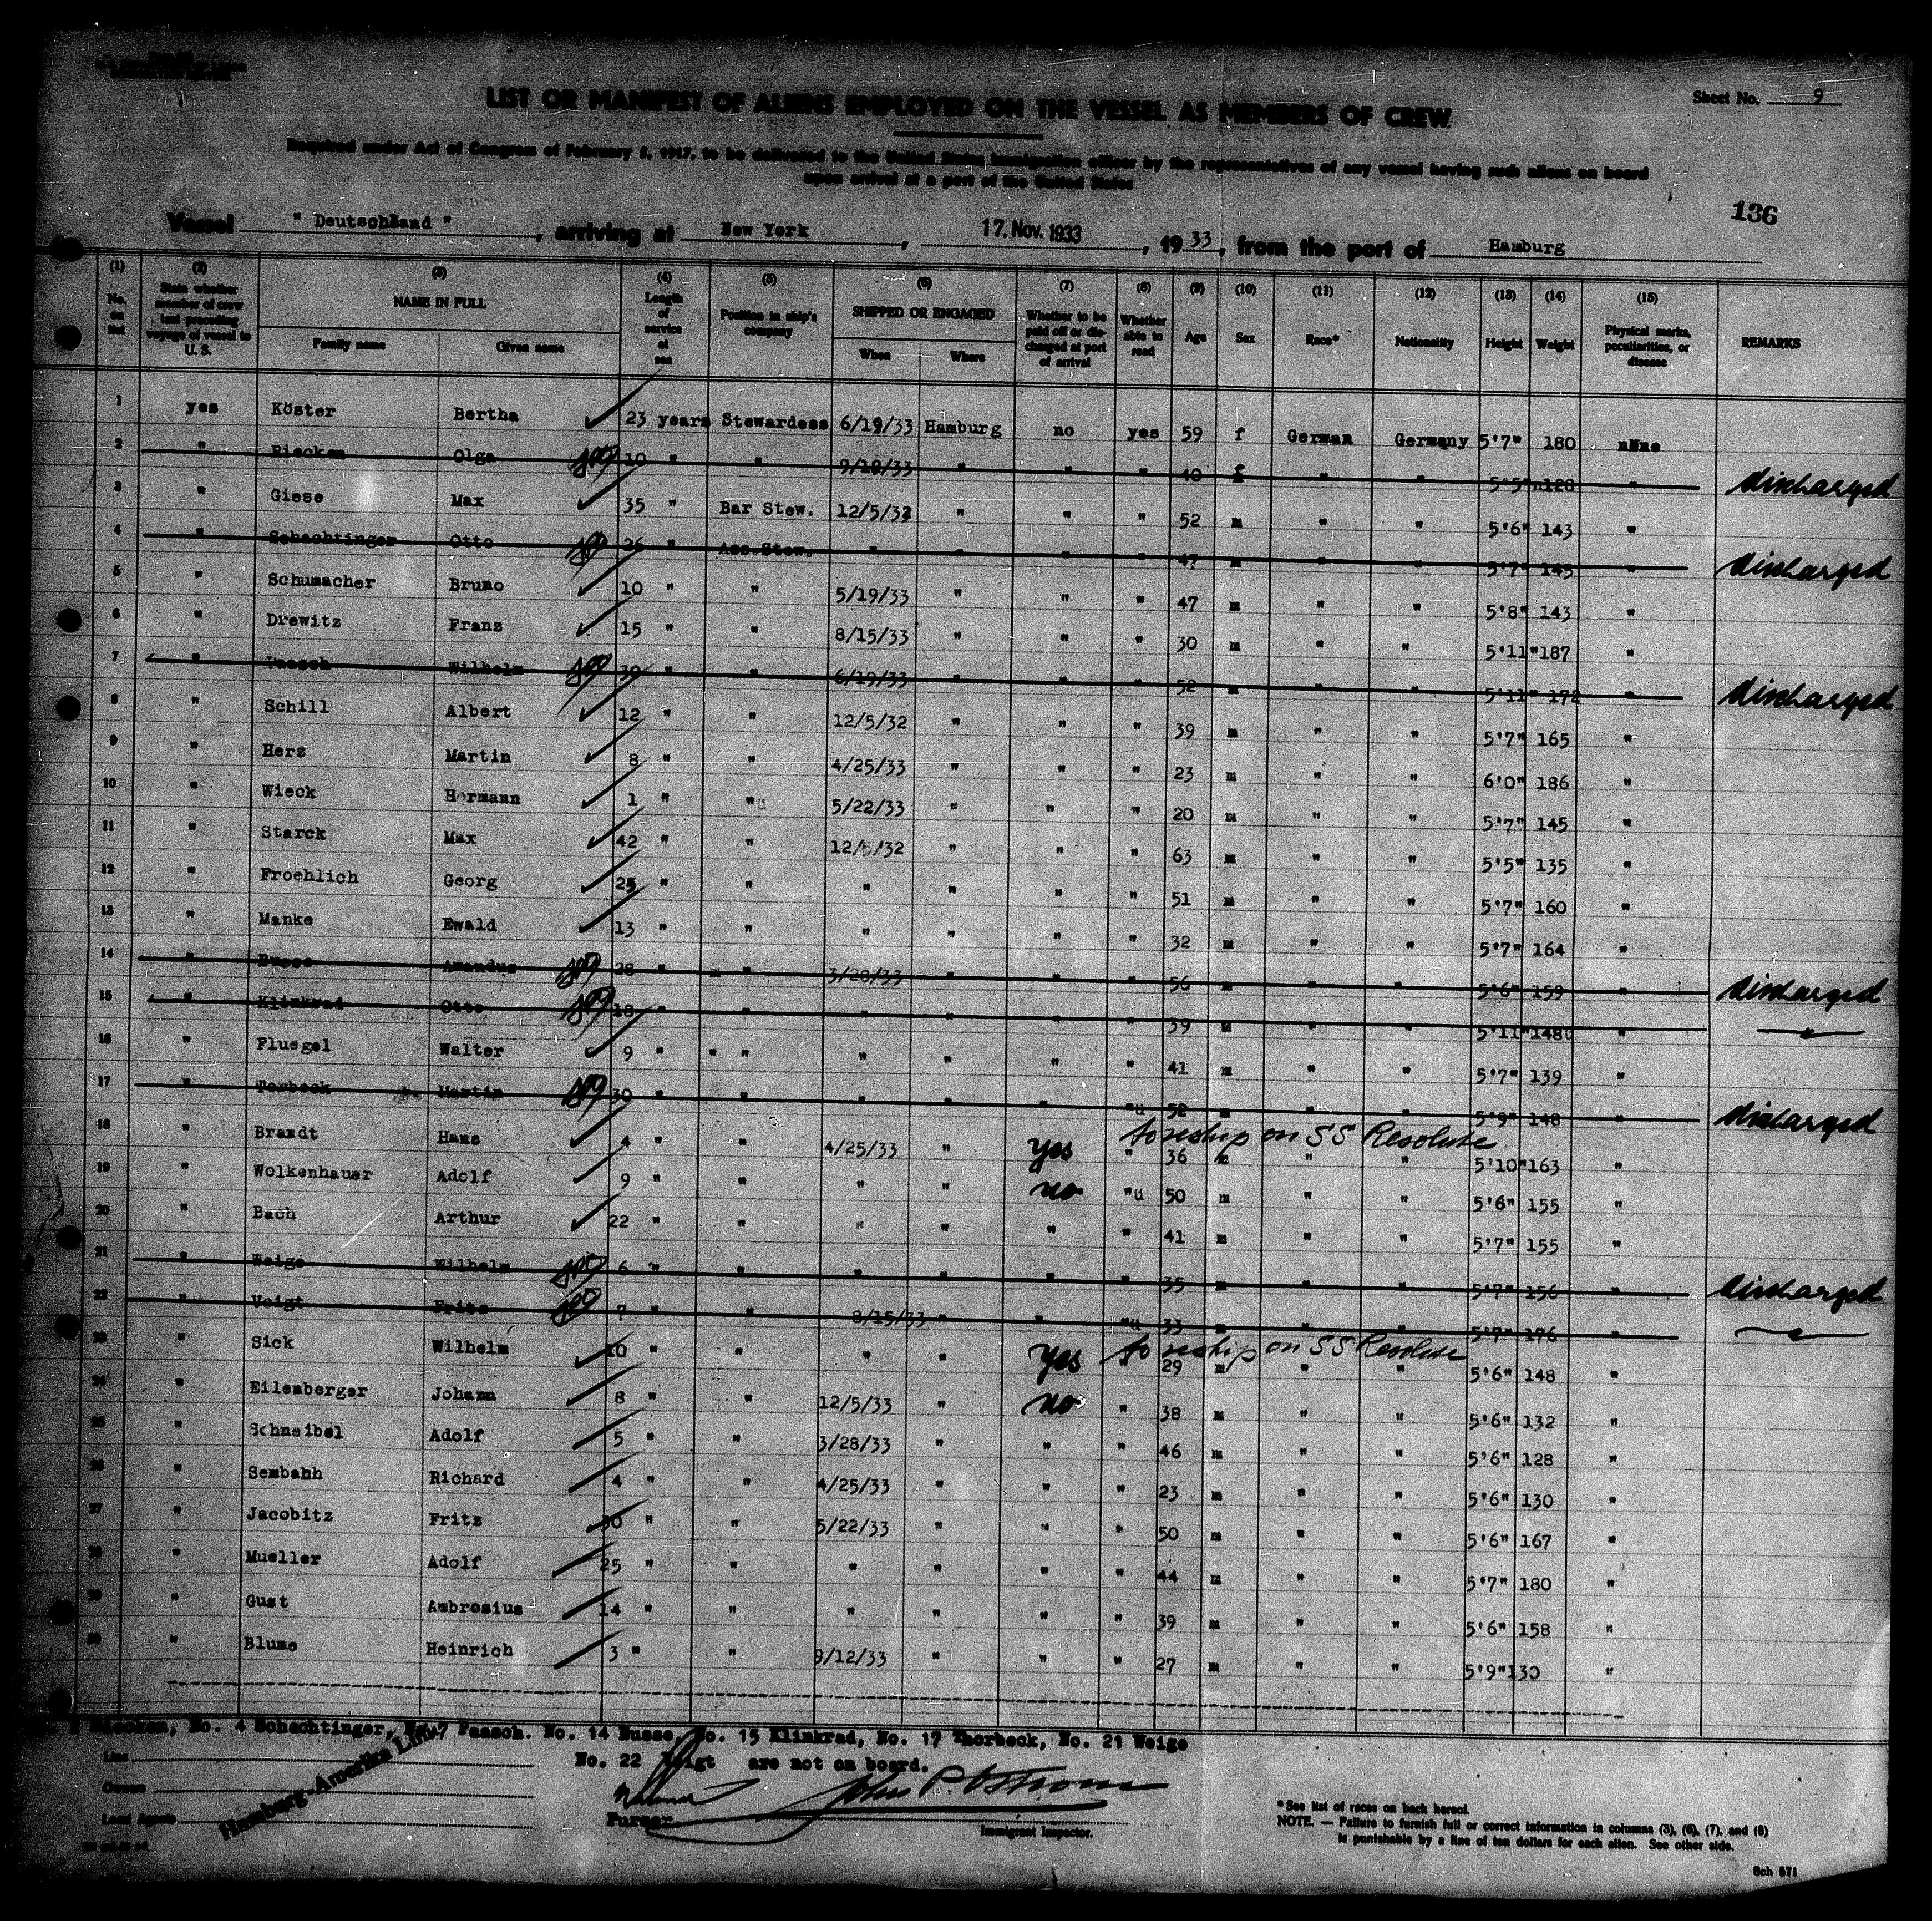 LIST OR MANIFEST OF ALIENS EMPLOYED ON THE VESSEL AS MEMBERS OF CREW
Sheet No. 9
Required under Act of Congress of February 5, 1917, to be delivered to the United States immigration officer by the representatives of any vessel having such aliens on board
upon arrival at a port of the United States
136
Vessel " Deutschland ", arriving at New York, 17. Nov. 1933, 1933, from the port of Hamburg
(1) (2) (3) (4) (5) (6) (7) (8) (9) (10) (11) (12) (13) (14) (15)
No. on list State whether member of crew last preceding voyage of vessel to U. S. NAME IN FULL Family name Given name Length of service at sea Position in ship's company SHIPPED OR ENGAGED When Where Whether to be paid off or discharged at port of arrival Whether able to read Age Sex Race* Nationality Height Weight Physical marks, peculiarities, or disease REMARKS
1 yes Köster Bertha 23 years Stewardess 6/19/33 Hamburg no yes 59 f German Germany 5'7" 180 none
2 " Riecken Olga 10 " " 9/18/33 " " " 40 f " " 5'5" 128 " discharged
3 " Giese Max 35 " Bar Stew. 12/5/32 " " " 52 m " " 5'6" 143 "
4 " Schachtinger Otto 26 " Ass.Stew. " " " " 47 m " " 5'7" 145 " discharged
5 " Schumacher Bruno 10 " " 5/19/33 " " " 47 m " " 5'8" 143 "
6 " Drewitz Franz 15 " " 8/15/33 " " " 30 m " " 5'11" 187 "
7 " Paasch Wilhelm 30 " " 6/19/33 " " " 52 m " " 5'11" 172 " discharged
8 " Schill Albert 12 " " 12/5/32 " " " 39 m " " 5'7" 165 "
9 " Herz Martin 8 " " 4/25/33 " " " 23 m " " 6'0" 186 "
10 " Wieck Hermann 1 " " 5/22/33 " " " 20 m " " 5'7" 145 "
11 " Starck Max 42 " " 12/5/32 " " " 63 m " " 5'5" 135 "
12 " Froehlich Georg 25 " " " " " " 51 m " " 5'7" 160 "
13 " Manke Ewald 13 " " " " " " 32 m " " 5'7" 164 "
14 " Busse Amandus 28 " " 3/28/33 " " " 56 m " " 5'6" 159 " discharged
15 " Klinkrad Otto 18 " " " " " " 59 m " " 5'11" 148 " "
16 " Fluegel Walter 9 " " " " " " 41 m " " 5'7" 139 "
17 " Torbeck Martin 30 " " " " " " 52 m " " 5'9" 148 " discharged
to reship on SS Resolute
18 " Brandt Hans 4 " " 4/25/33 " yes " 36 m " " 5'10" 163 "
19 " Wolkenhauer Adolf 9 " " " " no " 50 m " " 5'6" 155 "
20 " Bach Arthur 22 " " " " " " 41 m " " 5'7" 155 "
21 " Weige Wilhelm 6 " " " " " " 35 m " " 5'7" 156 " discharged
22 " Voigt Fritz 7 " " 8/15/33 " " " 33 m " " 5'7" 176 " "
to reship on SS Resolute
23 " Sick Wilhelm 10 " " " " yes " 29 m " " 5'6" 148 "
24 " Eilenberger Johann 8 " " 12/5/33 " no " 38 m " " 5'6" 132 "
25 " Schneibel Adolf 5 " " 3/28/33 " " " 46 m " " 5'6" 128 "
26 " Sembahh Richard 4 " " 4/25/33 " " " 23 m " " 5'6" 130 "
27 " Jacobitz Fritz 30 " " 5/22/33 " " " 50 m " " 5'6" 167 "
28 " Mueller Adolf 25 " " " " " " 44 m " " 5'7" 180 "
29 " Gust Ambrosius 14 " " " " " " 39 m " " 5'6" 158 "
30 " Blume Heinrich 3 " " 9/12/33 " " " 27 m " " 5'9" 130 "
2 Riecken, No. 4 Schachtinger, No. 7 Paasch. No. 14 Busse, No. 15 Klinkrad, No. 17 Thorbeck, No. 21 Weige
No. 22 Voigt are not on board.
Line
Owners
Local Agents
Hamburg-Amerika Linie
Purser
John P. Ostrom
Immigrant Inspector.
*See list of races on back hereof.
NOTE. — Failure to furnish full or correct information in columns (3), (6), (7), and (8)
is punishable by a fine of ten dollars for each alien. See other side.
Sch 571